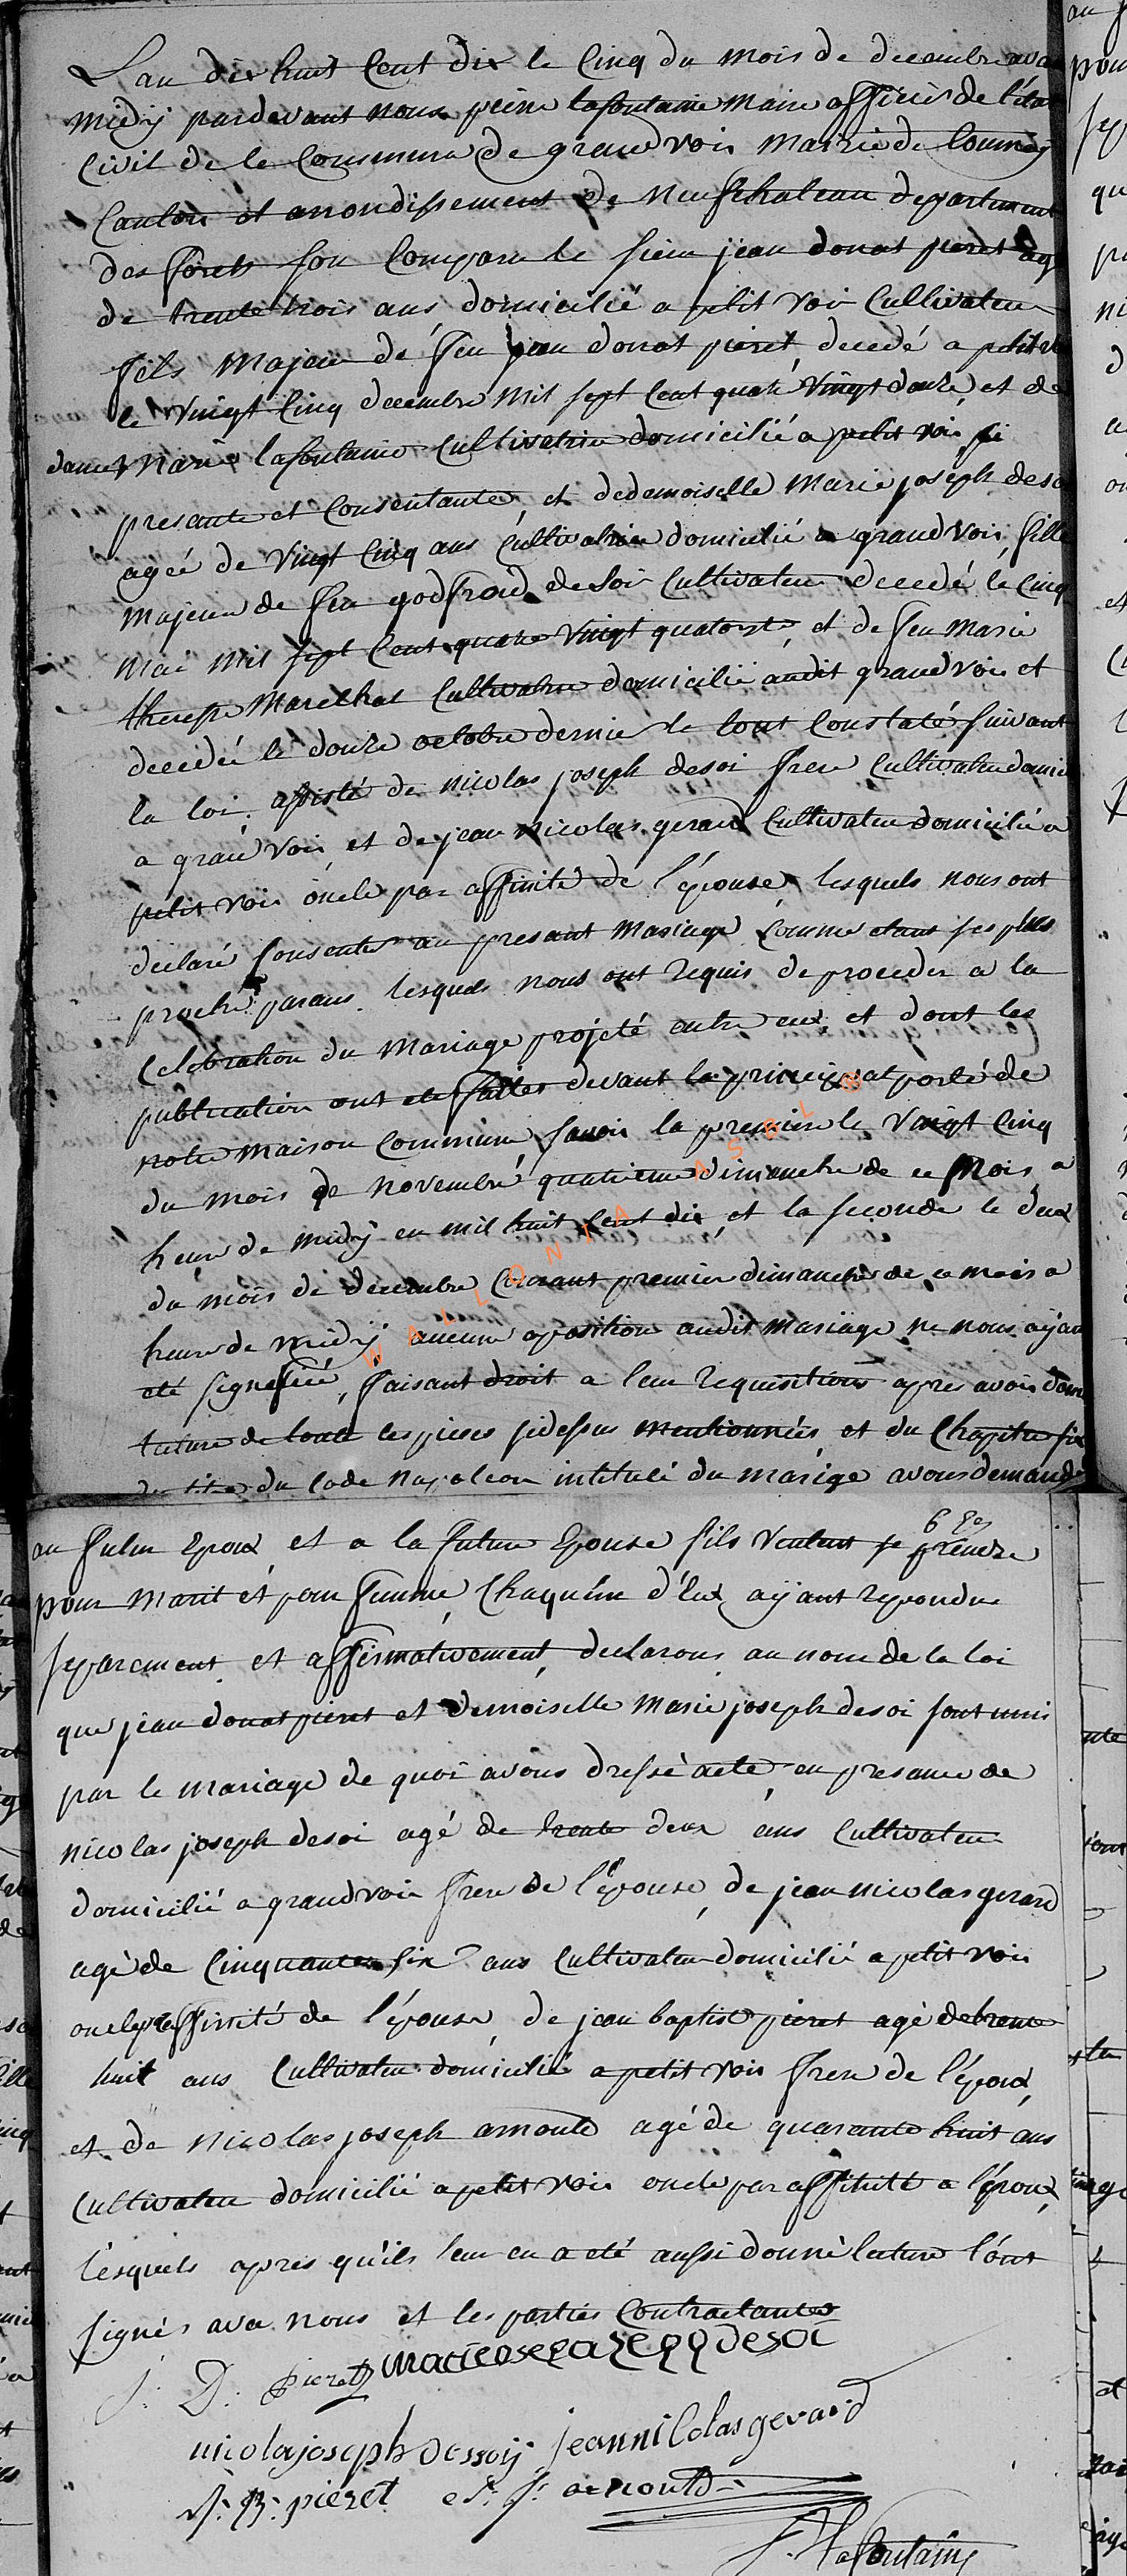 L'an dix huit Cent dix le Cinq du mois de decembre avant
midij pardevant nous pierre lafontaine Maire officier de l'état
Civil de le Commune de grand voir Mairie de tournay
Canton et arrondissement de Neufchateau departement
des forêts son Comparu le sieur jean donat pieret agé
de trente trois ans domicilié a petit voir Cultivateur
fils Majeur de feu jean donat pieret, decedé a petit voir
le vingt Cinq decembre Mil sept Cent quatre vingt douze, et de
dame Marie lafontaine Cultivatrice domicilié a petit voir, si
presante et Consentante, et de demoiselle Marie joseph desoi
ageé de vingt Cinq ans Cultivatrice domicilié a grand voir, fille
majeure de feu godfroid desoi Cultivateur decedé le Cinq
Mai Mil sept Cent quatre vingt quatorze, et de feu Marie
therese Marechal Cultivatrice domicilié audit grand voir et
decedée le douze octobre dernier le tout Constaté suivant
la loi, assisté de nicolas joseph desoi frere Cultivateur domicilié
a grand voir, et de jean Nicolas gerard Cultivateur domicilié a
petit voir oncle par affinité de l'épouse, lesquels nous ont
declaré Consenter au presant Mariage Comme etant ses plus
proche parans. lesquels nous ont requis de proceder a la
Celebration du Mariage projeté entre eux, et dont les
publication ont ete faites devant la principal porte de
notre maison Commune, savoir la premiere le vingt Cinq
du mois de Novembre quatrieme dimanche de ce Mois, a
heure de midij en mil huit Cent dix, et la seconde le deux
du mois de decembre Courant premier dimanche de ce mois a
heure de midij aucune oposition audit Mariage ne nous aijant
eté signefieé, faisant droit a leur requisitions apres avoir donné
lecture de toute les pieces sidessus mentionnées, et du Chapitre six
du titre du Code Napoleon intitulé du mariage avons demandé
6 8es
au futur Epoux et a la future Epouse s'ils veulent se prendre
pour marit et pour femme, Chaquun d'Eux aijant repondue
separement et affirmativement, declarons au nom de la loi
que jean donat pieret et demoiselle Marie joseph desoi sont unis
par le mariage de quoi avons dressé acte en presance de
nicolas joseph desoi agé de trente deux ans Cultivateur
domicilié a grand voir frere de l'épouse, de jean nicolas gerard
agé de Cinquante six ans Cultivateur domicilié a petit voir
oncle par affinité de l'épouse, de jean baptist pieret agé de trente
huit ans Cultivateur domicilié a petit voir frere de l'époux,
et de Nicolas joseph arnould agé de quarante huit ans
Cultivateur domicilié a petit voir oncle par affinité a l'époux,
lesquels apres qu'ils leur en a eté aussi donné lecture l'ont
signés avec nous et les parties Contractantes
J: D: Pieret desoi
nicola joseph dessoij jean nicolas gerard
J: B: pieret N: J: arnould
P. Lafontaine
WALLONIA ASBL